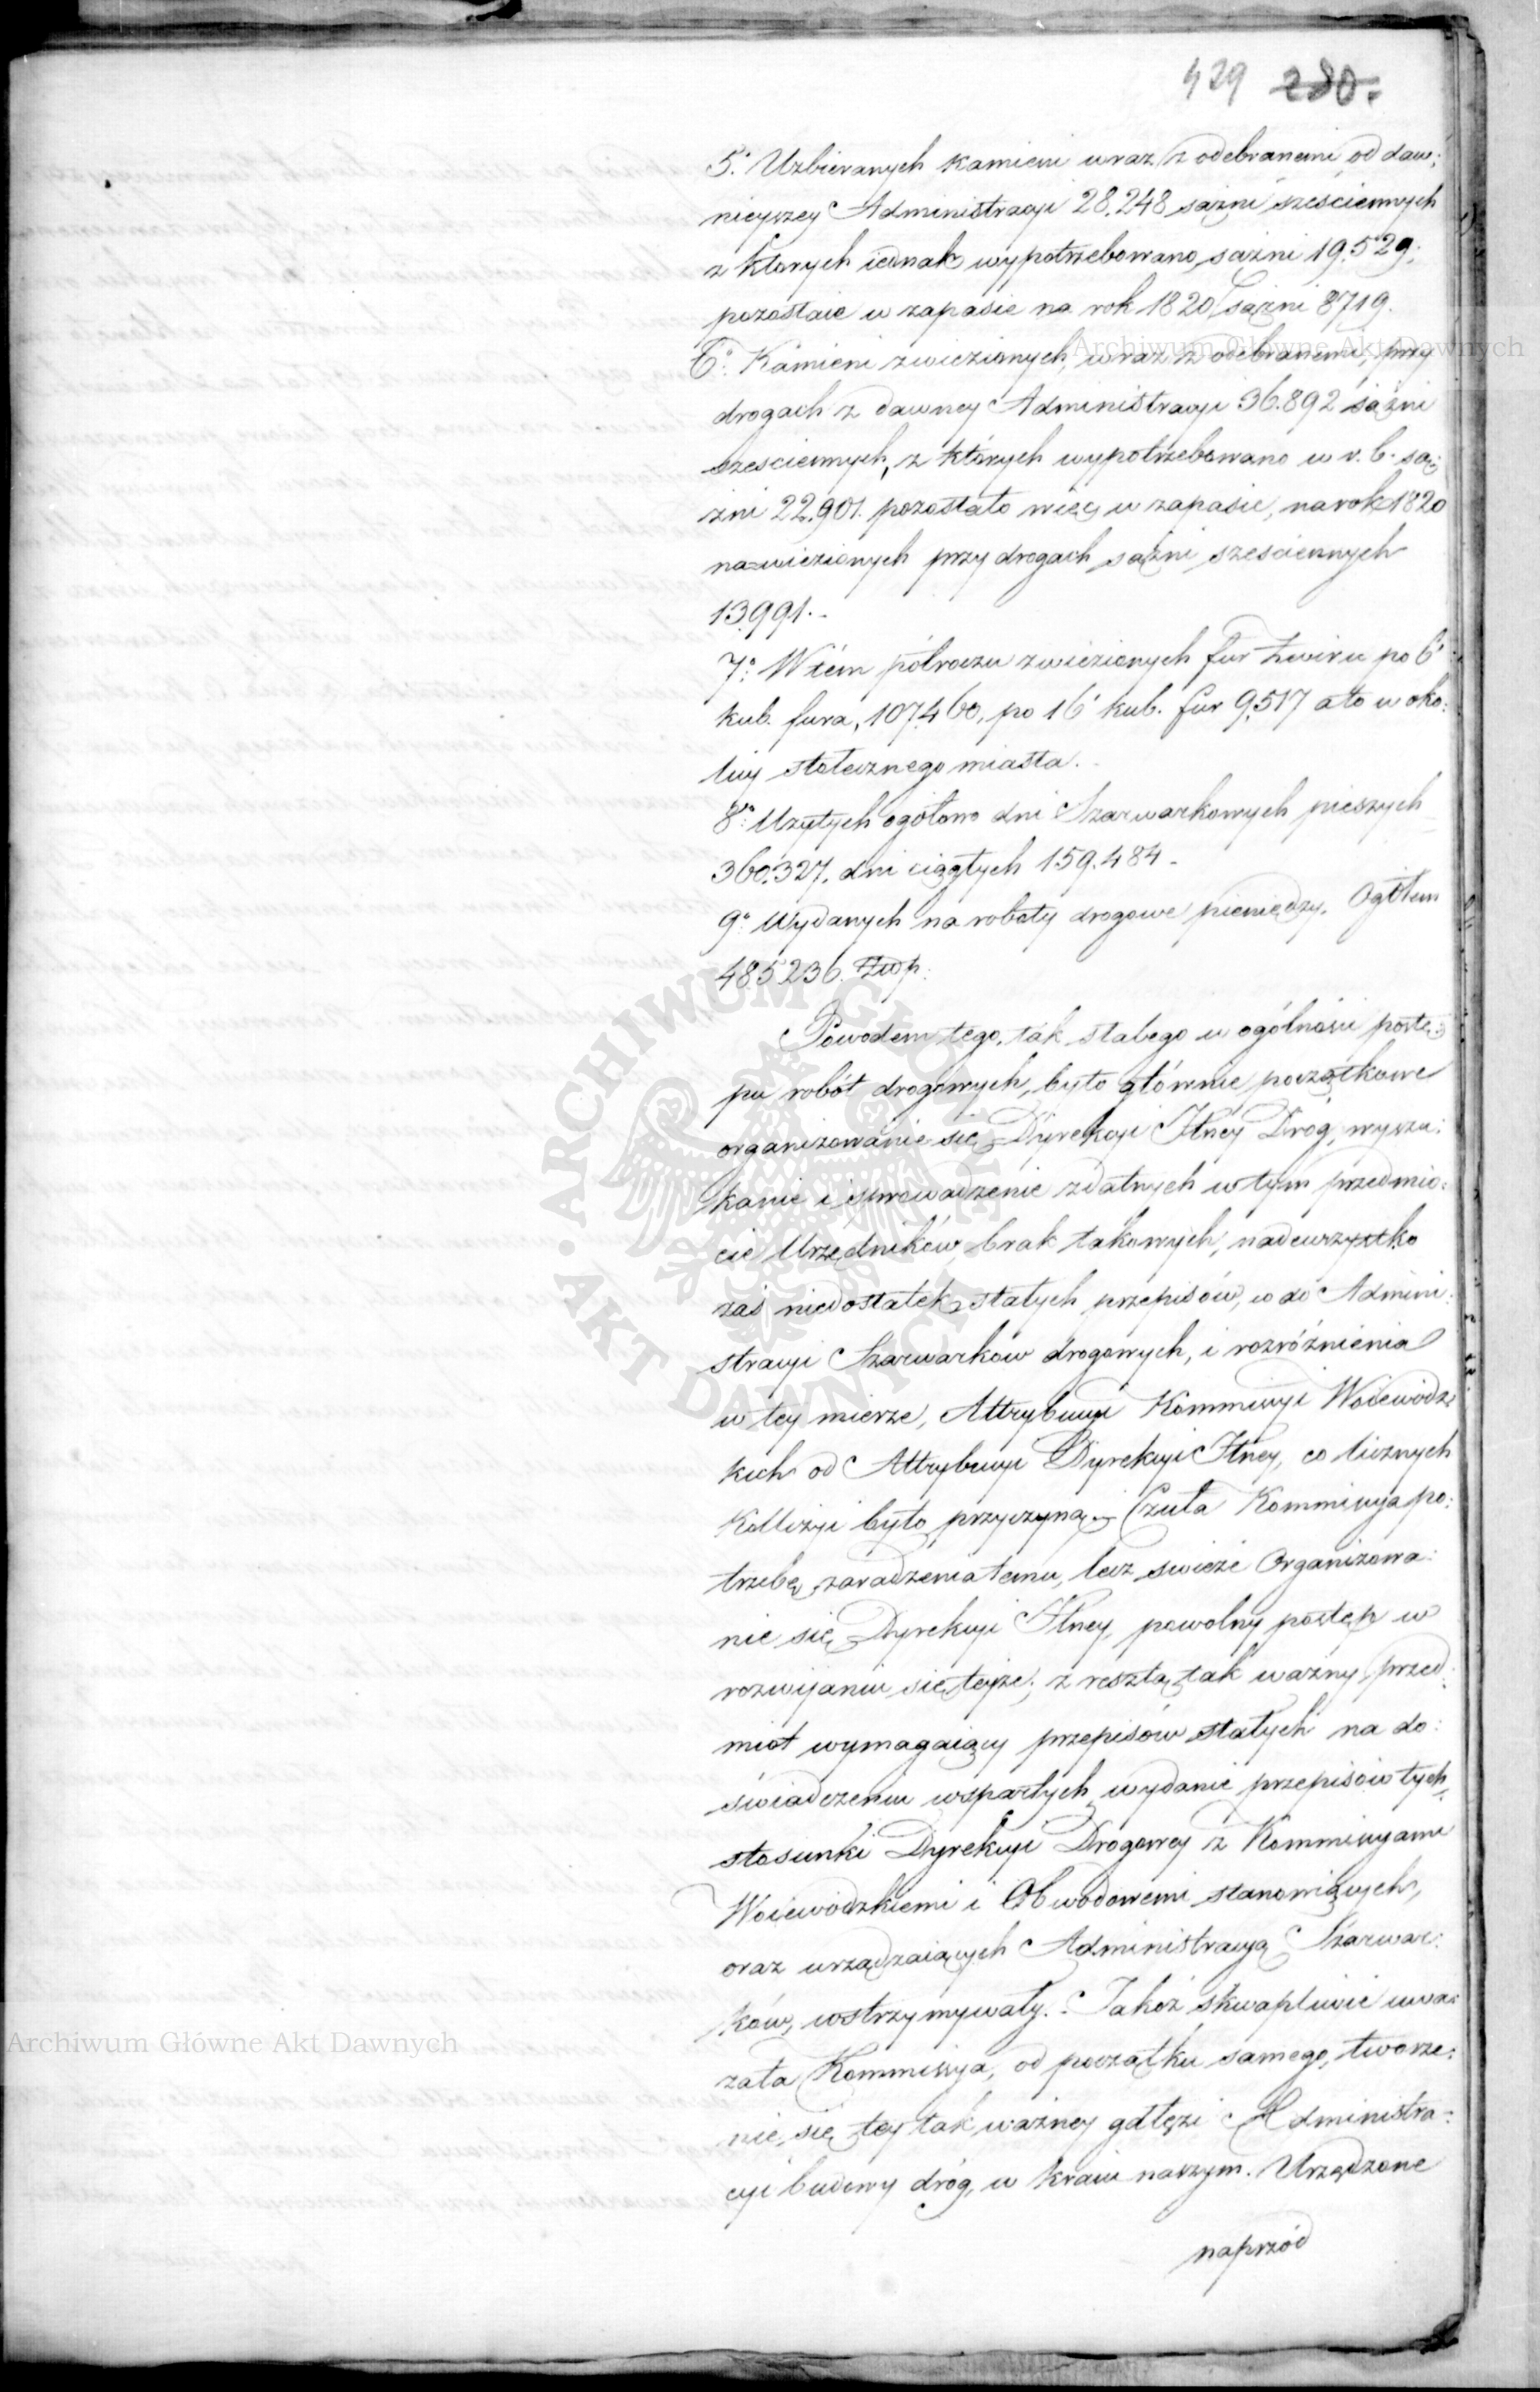 429 280.
5º. Uzbieranych kamieni wraz z odebranemi od daw:
nieyszey Administracyi 28.248 sążni sześciennych
z których iednak wypotrzebowano sążni 19.529.
pozostaie w zapasie na rok 1820 sążni 8719.
6º. Kamieni zwiezionych, wraz z odebranemi, przy
drogach z dawney Administracyi 36.892 sążni
sześciennych, z których wypotrzebowano w r. b. są:
żni 22.901. pozostało więc w zapasie, na rok 1820
nazwiezionych przy drogach sążni sześciennych
13.991.
7º. W tém półroczu zwiezionych fur żwiru po 6'
kub. fura, 107.460, po 16' kub. fur 9.517 a to w oko:
licy stołecznego miasta.
8º. Użytych ogółowo dni Szarwarkowych pieszych
360.327. dni ciągłych 159.484.
9º. Wydanych na roboty drogowe pieniędzy. Ogółem
485.236. Złłp:
Powodem tego, tak słabego w ogólności postę:
pu robót drogowych, było głównie początkowe
organizowanie się Dyrekcyi Jlney Dróg, wyszu:
kanie i sprowadzenie zdatnych w tym przedmio:
cie Urzędników, brak takowych, nadewszystko
zaś niedostatek stałych przepisów, co do Admini:
stracyi Szarwarków drogowych, i rozróżnienia
w tey mierze, Attrybucyi Kommissyi Woiewódz:
kich od Attrybucyi Dyrekcyi Jlney, co licznych
Kollizyi było przyczyną. Czuła Kommissya po:
trzebę zaradzenia temu, lecz świeże Organizowa:
nie się Dyrekcyi Jlney, powolny postęp w
rozwijaniu się teyże; z resztą tak ważny przed:
miot wymagaiący przepisów stałych na do:
świadczeniu wspartych, wydanie przepisów tych,
stosunki Dyrekcyi Drogowey z Kommissyami
Woiewódzkiemi i Obwodowemi stanowiących,
oraz urządzaiących Administracyą Szarwar:
ków, wstrzymywały. Jakoż skwapliwie uwa:
żała Kommissya, od początku samego, tworze:
nie się tey tak ważney gałęzi Administra:
cyi budowy dróg, w kraiu naszym. Urządzone
naprzód
Archiwum Główne Akt Dawnych
Archiwum Główne Akt Dawnych
ARCHIWUM GŁÓWNE AKT DAWNYCH